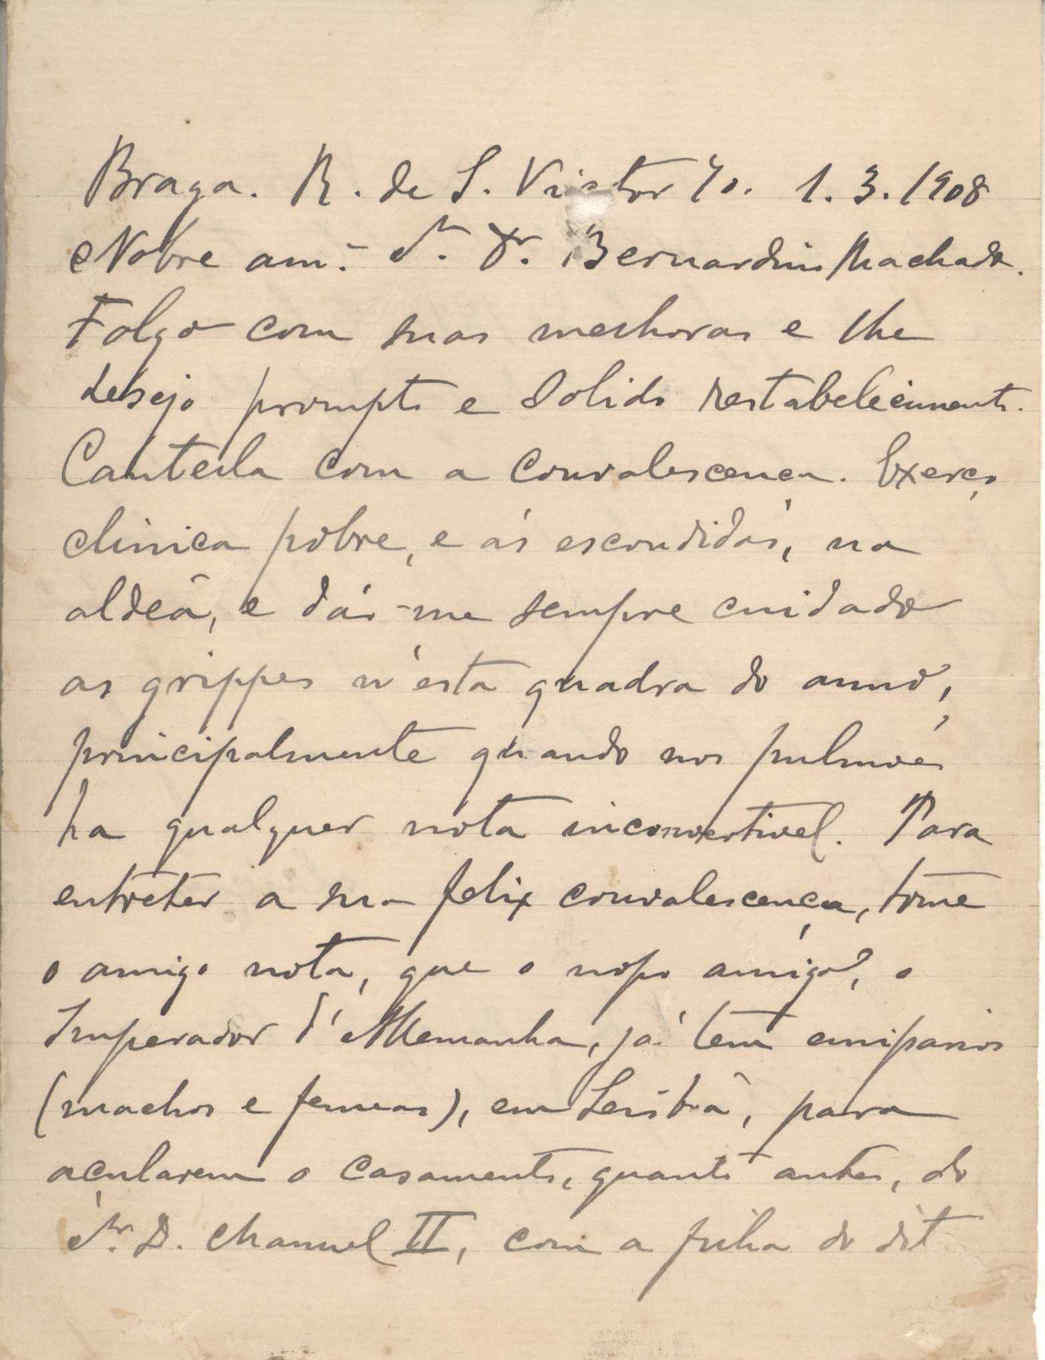 Braga. R. de S. Victor 70. 1.3.1908
Nobre am.º Sr. Dr. Bernardino Machado.
Folgo com suas melhoras e lhe
desejo prompto e solido restabelecimento.
Cautella com a convalescença. Exerço
clinica pobre, e ás escondidas, na
aldeã, e dás-me sempre cuidado
as grippes n'esta quadra do anno,
principalmente quando nos pulmões
ha qualquer nota inconvertivel. Para
entreter a sua felix convalescença, tome
o amigo nota, que o nosso amigo, o
Imperador d'Allemanha, já tem emissarios
(machos e femeas), em Lisbôa, para
açularem o casamento, quanto antes, do
Sr. D. Manuel II, com a filha do dito